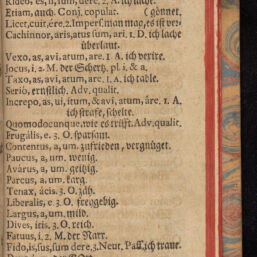 Rideo, es, si, sum, dere, 2. A. ich lache.
Etiam, auch. Conj. copulat. ( gönnet.
Licet, cuit, ere, 2. Imperf. man mag, es ist ver-
Cachinnor, aris, atus sum, ari. 1. D. ich lache
überlaut.
Vexo, as, avi, atum, are. 1. A. ich vexire.
Jocus, i. 2. M. der Schertz. pl. i. & a.
Taxo, as, avi, atum, are, 1. A. ich table.
Seriò, ernstlich. Adv. qualit.
Increpo, as, ui, itum, & avi, atum, âre. 1. A.
ich straffe, schelte.
Quomodocunque, wie es trifft. Adv. qualit.
Frugâlis, e. 3. O. sparsam.
Contentus, a, um. zufrieden, vergnüget.
Paucus, a, um. wenig.
Avârus, a, um. geitzig.
Parcus, a, um. karg.
Tenax, âcis. 3. O. zäh.
Liberalis, e. 3. O. freygebig.
Largus, a, um. mild.
Dives, itis. 3. O. reich.
Fatuus, i, 2. M. der Narr.
Fido, is, sus, sum dere, 3. Neut. Pass. ich traue.